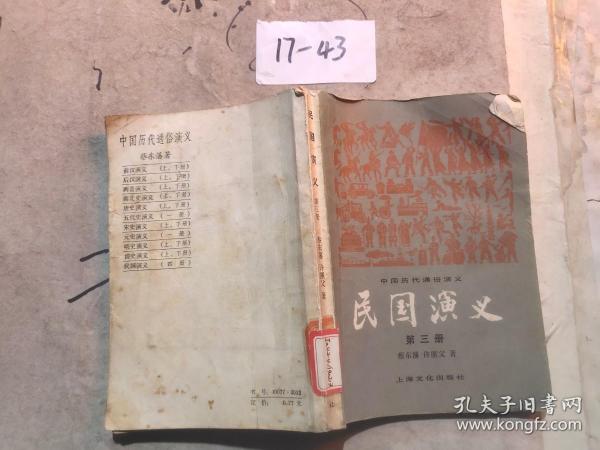 17-43
中国历代通俗演义
蔡东藩著
前汉演义 (上、下册)
后汉演义 (上、下册)
两晋演义 (上、下册)
南北史演义 (上、下册)
唐史演义 (上、下册)
五代史演义 (一册)
宋史演义 (上、下册)
元史演义 (一册)
明史演义 (上、下册)
清史演义 (上、下册)
民国演义 (四册)
定价: 0.77元
民国演义 第三册 蔡东藩 许廑父 著
中国历代通俗演义
民国演义
第三册
蔡东藩 许廑父 著
上海文化出版社
孔夫子旧书网
www.kongfz.com